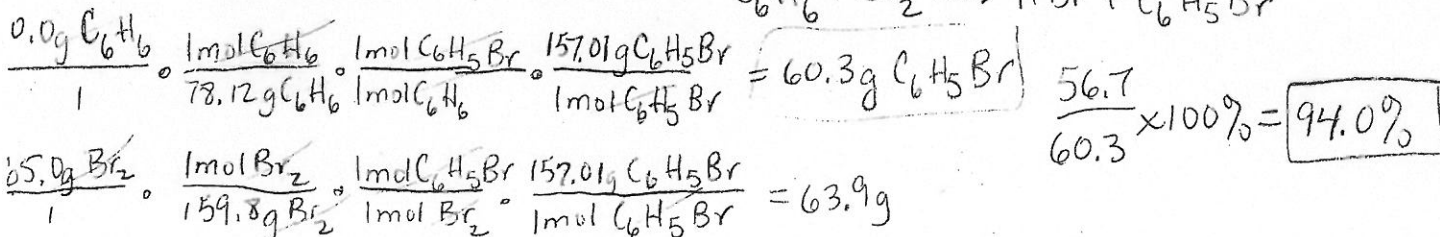 C₆H₆ 2 C₆H₅Br
0.0g C₆H₆ / 1 · 1mol C₆H₆ / 78.12g C₆H₆ · 1mol C₆H₅Br / 1mol C₆H₆ · 157.01g C₆H₅Br / 1mol C₆H₅Br = 60.3g C₆H₅Br
56.7 / 60.3 ×100% = 94.0%
5.0g Br₂ / 1 · 1mol Br₂ / 159.8g Br₂ · 1mol C₆H₅Br / 1mol Br₂ · 157.01g C₆H₅Br / 1mol C₆H₅Br = 63.9g